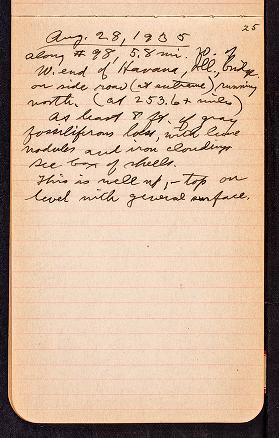 25
Aug. 28, 1935
along # 98, 5.8 mi. N. of
W. end of Havana, Ill., bridge
on side road (at entrance), running
north. (at 253.6+ miles)
At least 8 ft. of gray
fossiliferous loess, with lime
nodules and iron cloudings
see box of shells.
This is well up, – top on
level with general surface.